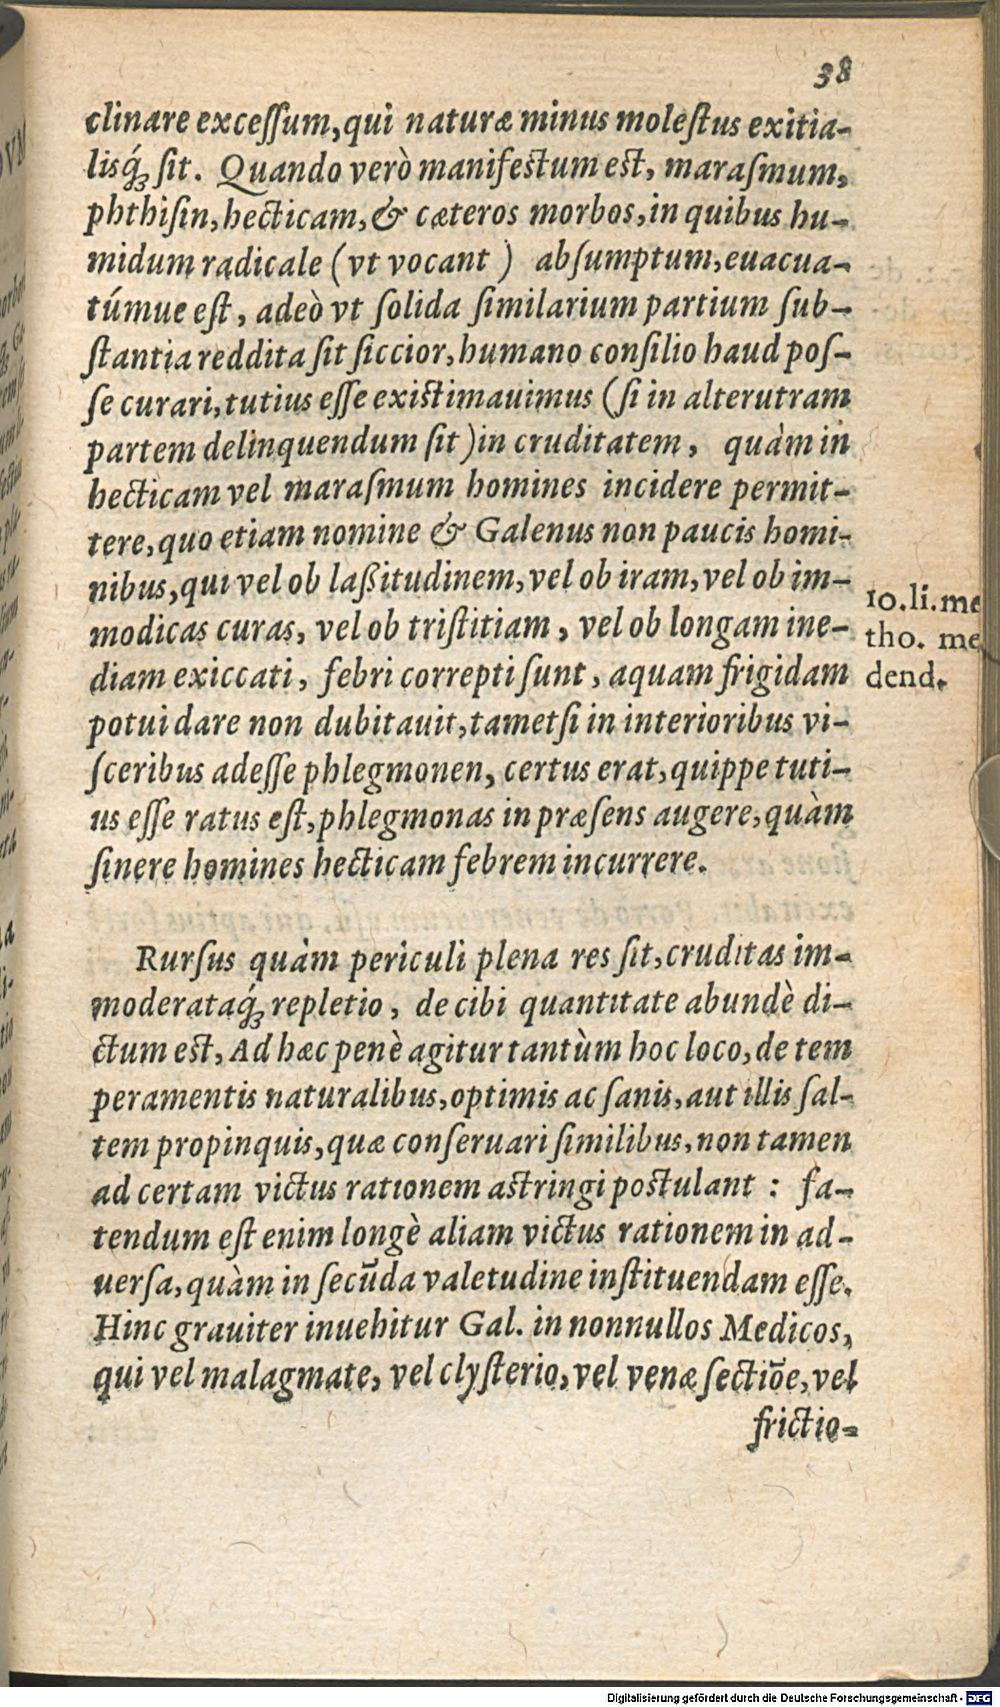 38
clinare exceſſum, qui naturæ minus moleſtus exitia-
lisq́; ſit. Quando verò manifeſtum eſt, maraſmum,
phthiſin, hecticam, & cæteros morbos, in quibus hu-
midum radicale (vt vocant) abſumptum, euacua-
túmue eſt, adeò vt ſolida ſimilarium partium ſub-
ſtantia reddita ſit ſiccior, humano conſilio haud poſ-
ſe curari, tutius eſſe exiſtimauimus (ſi in alterutram
partem delinquendum ſit) in cruditatem, quàm in
hecticam vel maraſmum homines incidere permit-
tere, quo etiam nomine & Galenus non paucis homi-
nibus, qui vel ob laßitudinem, vel ob iram, vel ob im-
modicas curas, vel ob triſtitiam, vel ob longam ine-
diam exiccati, febri correpti ſunt, aquam frigidam
potui dare non dubitauit, tametſi in interioribus vi-
ſceribus adeſſe phlegmonen, certus erat, quippe tuti-
us eſſe ratus eſt, phlegmonas in præſens augere, quàm
ſinere homines hecticam febrem incurrere.
10.li.me
tho. me
dend.
Rurſus quàm periculi plena res ſit, cruditas im-
moderataq́; repletio, de cibi quantitate abundè di-
ctum eſt, Ad hæc penè agitur tantùm hoc loco, de tem
peramentis naturalibus, optimis ac ſanis, aut illis ſal-
tem propinquis, quæ conſeruari ſimilibus, non tamen
ad certam victus rationem aſtringi poſtulant : fa-
tendum eſt enim longè aliam victus rationem in ad-
uerſa, quàm in ſecūda valetudine inſtituendam eſſe.
Hinc grauiter inuehitur Gal. in nonnullos Medicos,
qui vel malagmate, vel clyſterio, vel venæ ſectiōe, vel
frictio-
Digitalisierung gefördert durch die Deutsche Forschungsgemeinschaft - DFG